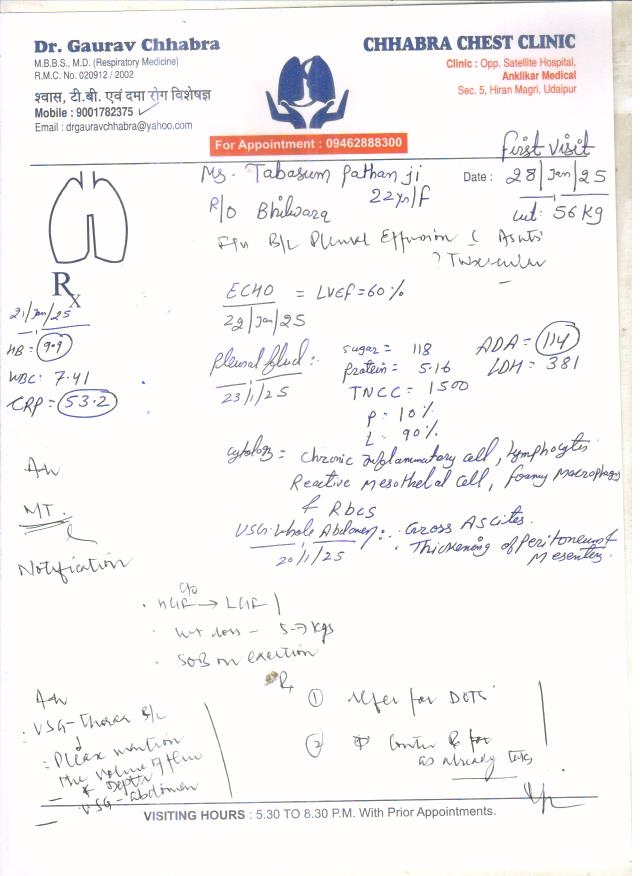 Dr. Gaurav Chhabra
M.B.B.S., M.D. (Respiratory Medicine)
R.M.C. No. 020912 / 2002
श्वास, टी.बी. एवं दमा रोग विशेषज्ञ
Mobile : 9001782375
Email : drgauravchhabra@yahoo.com
CHHABRA CHEST CLINIC
Clinic : Opp. Satellite Hospital,
Anklikar Medical
Sec. 5, Hiran Magri, Udaipur
For Appointment : 09462888300
First Visit
Ms. Tabasum Pathan ji
22yr/F
Date : 28/Jan/25
R/O Bhilwara
wt: 56 Kg
B/L Pleural Effusion
Rx
ECHO = LVEF=60%
22/Jan/25
21/Jan/25
HB = 9.9
WBC: 7.41
CRP = 53.2
Pleural fluid :-
23/1/25
sugar = 118
Protein = 5.16
TNCC = 1500
P = 10%
L = 90%
ADA = 114
LDH = 381
Cytology = Chronic Inflammatory cell, Lymphocytes
Reactive Mesothelial Cell, foamy Macrophages
& Rbcs
USG Whole Abdomen :- Gross Ascites.
20/1/25
Thickening of Peritoneum &
Mesentery.
Adv
MT.
Notification
c/o
HGF → LGF
wt loss - 5-7 kgs
SOB on exertion
Adv
USG-Thorax B/L
Please mention
the volume of fluid
& Depth
USG-abdomen
R
① refer for DOTS
②
as already
VISITING HOURS : 5.30 TO 8.30 P.M. With Prior Appointments.